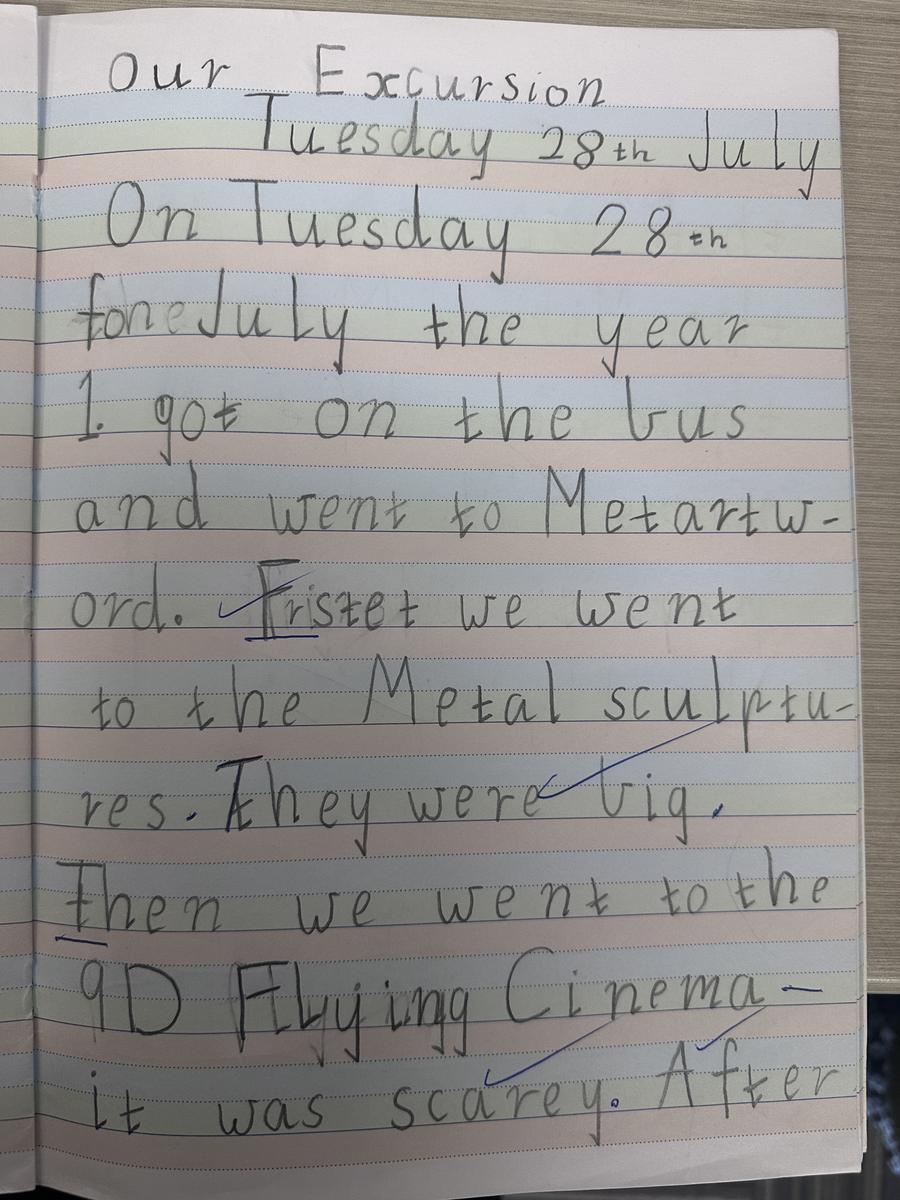 Our Excursion
Tuesday 28th July
On Tuesday 28th
July the year
1. got on the bus
and went to Metartw-
ord. Fristet we went
to the Metal sculptu-
res. They were big.
Then we went to the
9D Flying Cinema -
it was scarey. After